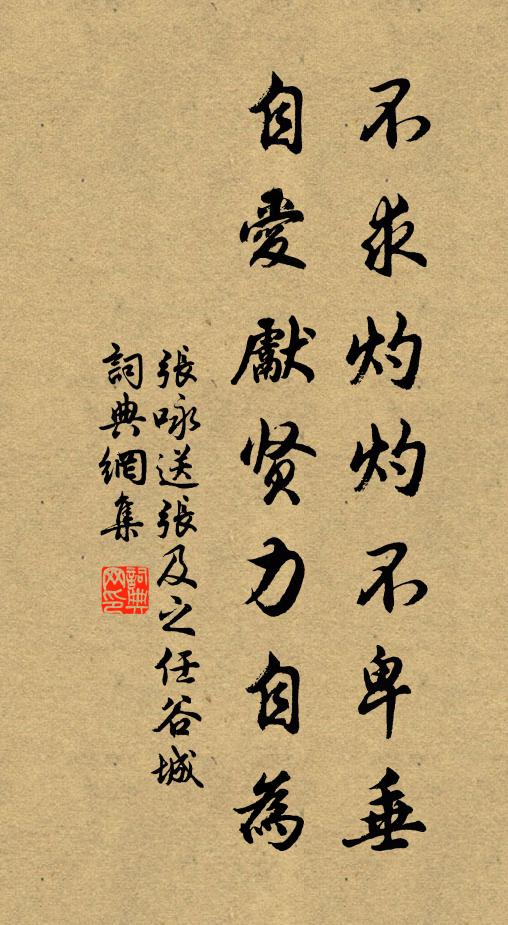 不求灼灼不卑垂
自愛獻贤力自為
張咏送張及之任谷城
詞典網集
詞典网印